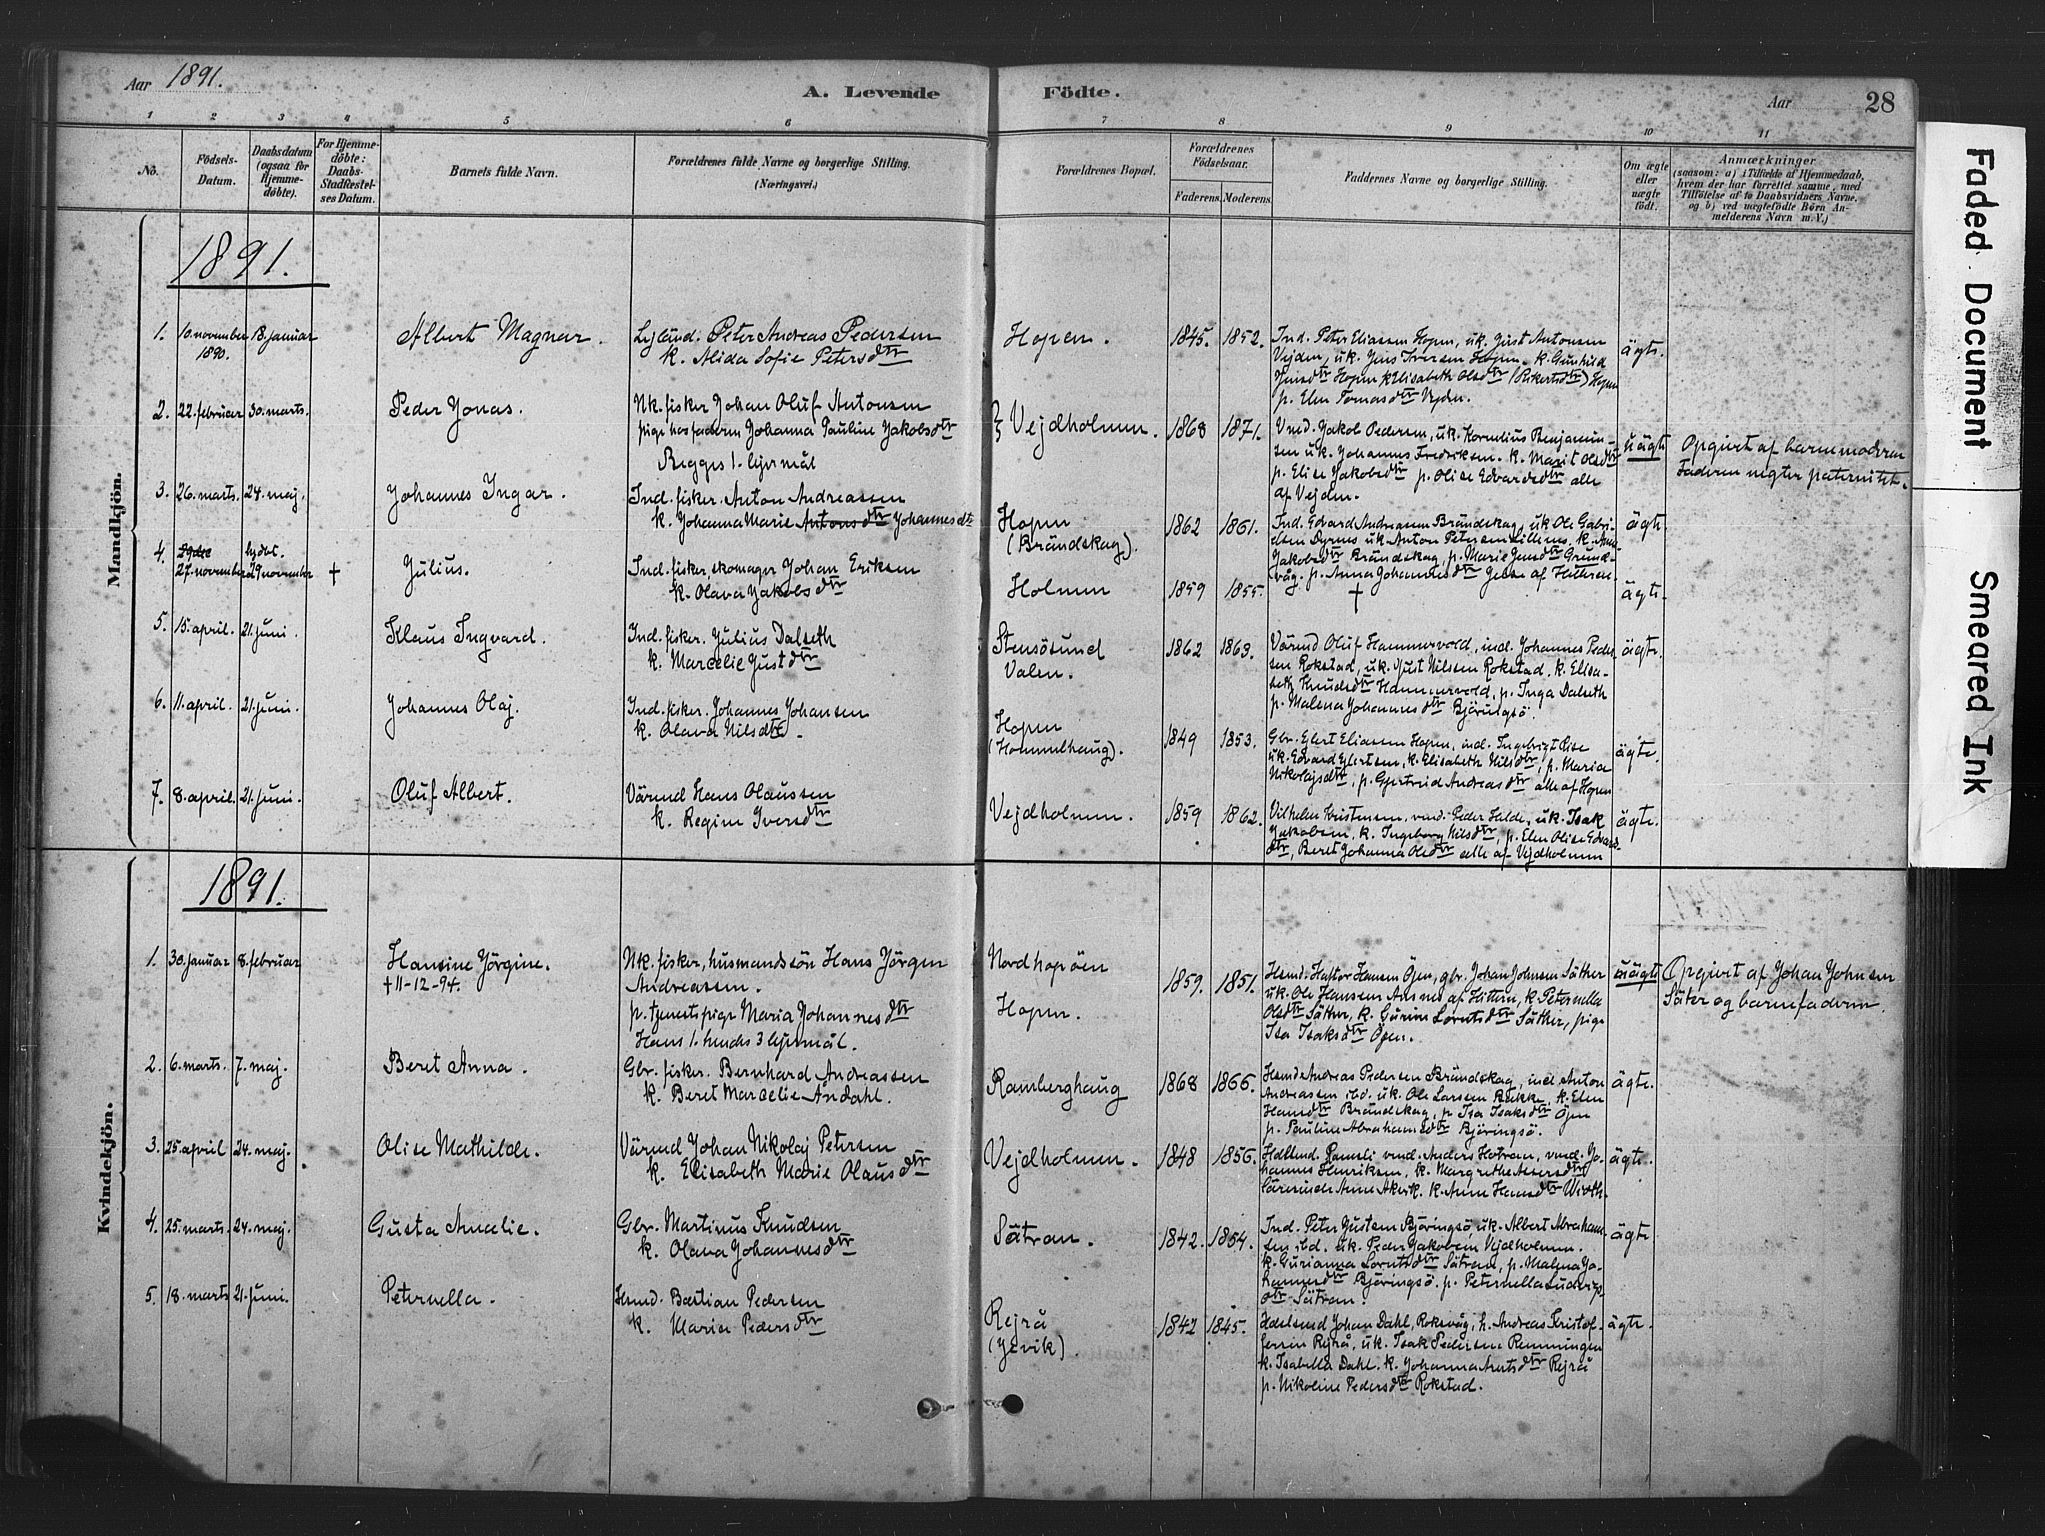 Aar 1891.
A. Levende Födte.
Aar
28
1 2 3 4 5 6 7 8 9 10 11
No.
Födsels-
Datum.
Daabsdatum
(ogsaa for
Hjemme-
döbte).
For Hjemme-
döbte:
Daabs-
Stadfæstel-
ses Datum.
Barnets fulde Navn.
Forældrenes fulde Navne og borgerlige Stilling.
(Næringsvei.)
Forældrenes Bopæl.
Forældrenes
Födselsaar.
Faderens. Moderens.
Faddernes Navne og borgerlige Stilling.
Om ægte
eller
uægte
födt.
Anmærkninger
(saasom: a) i Tilfælde af Hjemmedaab,
hvem der har forrettet samme, med
Tilföielse af to Daabsvidners Navne.
og b) ved uægtefödte Börn An-
melderens Navn m. V.)
Mandkjön.
1891.
1. 10. november 18. januar
1890.
Albert Magnar.
Peter Andreas Pedersen
k. Alida Sofie Petersdtr
Hopen.
1845. 1852.
Ind. Peter Eliassen Hopen, uk. Just Antonsen
Vejden, uk. Jens Iversen Hopen. k. Gunhild
Jensdtr Hopen k Elisabeth Olsdtr (Rikertsdtr) Hopen
p. Elen Tomasdtr Vejden.
ägte.
2. 22. februar 30. marts.
Peder Jonas.
Nk. fisker Johan Oluf Antonsen
pige hos faderen Johanna Pauline Jakobsdtr
Begges 1. lejermål
Vejdholmen.
1868 1871.
Vmd. Jakob Pedersen, uk. Kornelius Benjamin-
sen uk. Johannes Fredriksen. k. Marit Olsdtr
p. Elise Jakobsdtr p. Olise Edvardsdtr alle
af Vejden.
uägte
Opgivet af barnemoderen
Faderen negter paternitet.
3. 26. marts. 24. maj.
Johannes Ingar.
Ind. fisker. Anton Andreassen
k. Johanna Marie Antonsdtr Johannesdtr
Hopen
(Brändskag).
1862 1861.
Ind. Edvard Andreasen Brändskag, uk Ole Gabri-
elsen Dyrnes uk. Anton Petersen k. Anne
Jakobsdtr Brändskag, p. Marie Jensdtr Grund-
våg. p. Anna Johannesdtr
ägte
4. hjdbt.
27. november 29 november †
Julius.
Ind. fisker, skomager Johan Eriksen
k. Olava Jakobsdtr
Holmen
1859 1855.
†
ägte.
5. 15. april. 21. juni.
Klaus Ingvard.
Ind. fisker. Julius Dalseth
k. Marcelie Justdtr
Stensösund
Valen.
1862 1863.
Värmd Oluf Hammervold, ind. Johannes Peder-
sen Rokstad, uk. Just Nilssen Rokstad. k. Elisa-
beth Knudsdtr Hammervold, p. Inga Dalseth
p. Malena Johannesdtr Björingsö.
ägte.
6. 11. april. 21. juni.
Johannes Olaj.
Ind. fisker. Johannes Johansen
k. Olava Nilsdtr.
Hopen
(Hommelhaug).
1849 1853.
Gbr. Ejlert Eliassen Hopen, ind. Ingebrigt Rise
uk. Edvard Ejlertsen, k. Elisabeth Nilsdtr, p. Maria
Nikolajsdtr, p. Gjertrud Andreasdtr alle af Hopen
ägte.
7. 8. april. 21. juni.
Oluf Albert.
Värmd Hans Olaussen
k. Regine Iversdtr
Vejdholmen.
1859 1862.
Vilhelm Kristensen, vmd. Peder Halde, uk. Isak
Jakobsen, k. Ingeborg Nilsdtr, p. Elen Olise Edvards-
dtr, Beret Johanna Olsdtr alle af Vejdholmen
ägte.
Kvindekjön.
1891.
1. 30. januar 8. februar
Hansine Jörgine.
† 11-12-94.
Nk. fisker, husmandssön Hans Jörgen
Andreassen.
p. tjenestepige Maria Johannesdtr
Hans 1. hendes 3 lejermål.
Nordhopöen
Hopen.
1859. 1851.
Hsmd. Haftor Hansen Öjen, gbr. Johan Johnsen Säther
uk. Ole Hanssen Ansnes af Hitteren, k Peternella
Olsdtr Säther, k. Gurine Lorntsdtr Säther, pige
Isa Isaksdtr Öjen.
uägte
Opgivet af Johan Johnsen
Säter og barnefaderen.
2. 6. marts. 7. maj.
Beret Anna.
Gbr. fisker. Bernhard Andreassen
k. Beret Marcelie Andahl.
Ramberghaug
1868 1866.
Hsmd. Andreas Pedersen Brändskag, ind Anton
Andreasen ibd. uk. Ole Larssen k. Elen
Hansdtr Brändskag, p Isa Isaksdtr Öjen
p. Pauline Abrahamsdtr Björingsö.
ägte.
3. 25. april 24. maj.
Olise Mathilde.
Värmd Johan Nikolaj Petersen
k. Elisabeth Marie Olausdtr
Vejdholmen.
1848 1856.
vmd. Anders Hotran, vmd. Jo-
hannes Henriksen, k. Margrethe
k. Anne Hansdtr
ägte.
4. 25. marts. 24. maj.
Gusta Amalie.
Gbr. Martinus Knudsen
k. Olava Johannesdtr
Sätran.
1842. 1854.
Ind. Peter Justsen Björingsö, uk. Albert Abraham-
sen ibd. uk. Peder Jakobsen Vejdholmen.
k. Gurianna Lorntsdtr Sätran, p. Malena Jo-
hannesdtr Björingsö. p. Peternella
dtr Sätran.
ägte
5. 18. marts 21. juni.
Peternella.
Hsmd. Bastian Pedersen
k. Marie Pedersdtr
Rejrå
(Jevik).
1842 1845.
Johan Dahl, Roksvåg, h. Andreas Kristof-
fersen Rejrå, uk. Isak Pedersen Remmingen
k. Isabella Dahl. k. Johanna Arntsdtr Rejrå
p. Nikoline Pedersdtr Rokstad.
ägte.
Faded Document
Smeared Ink